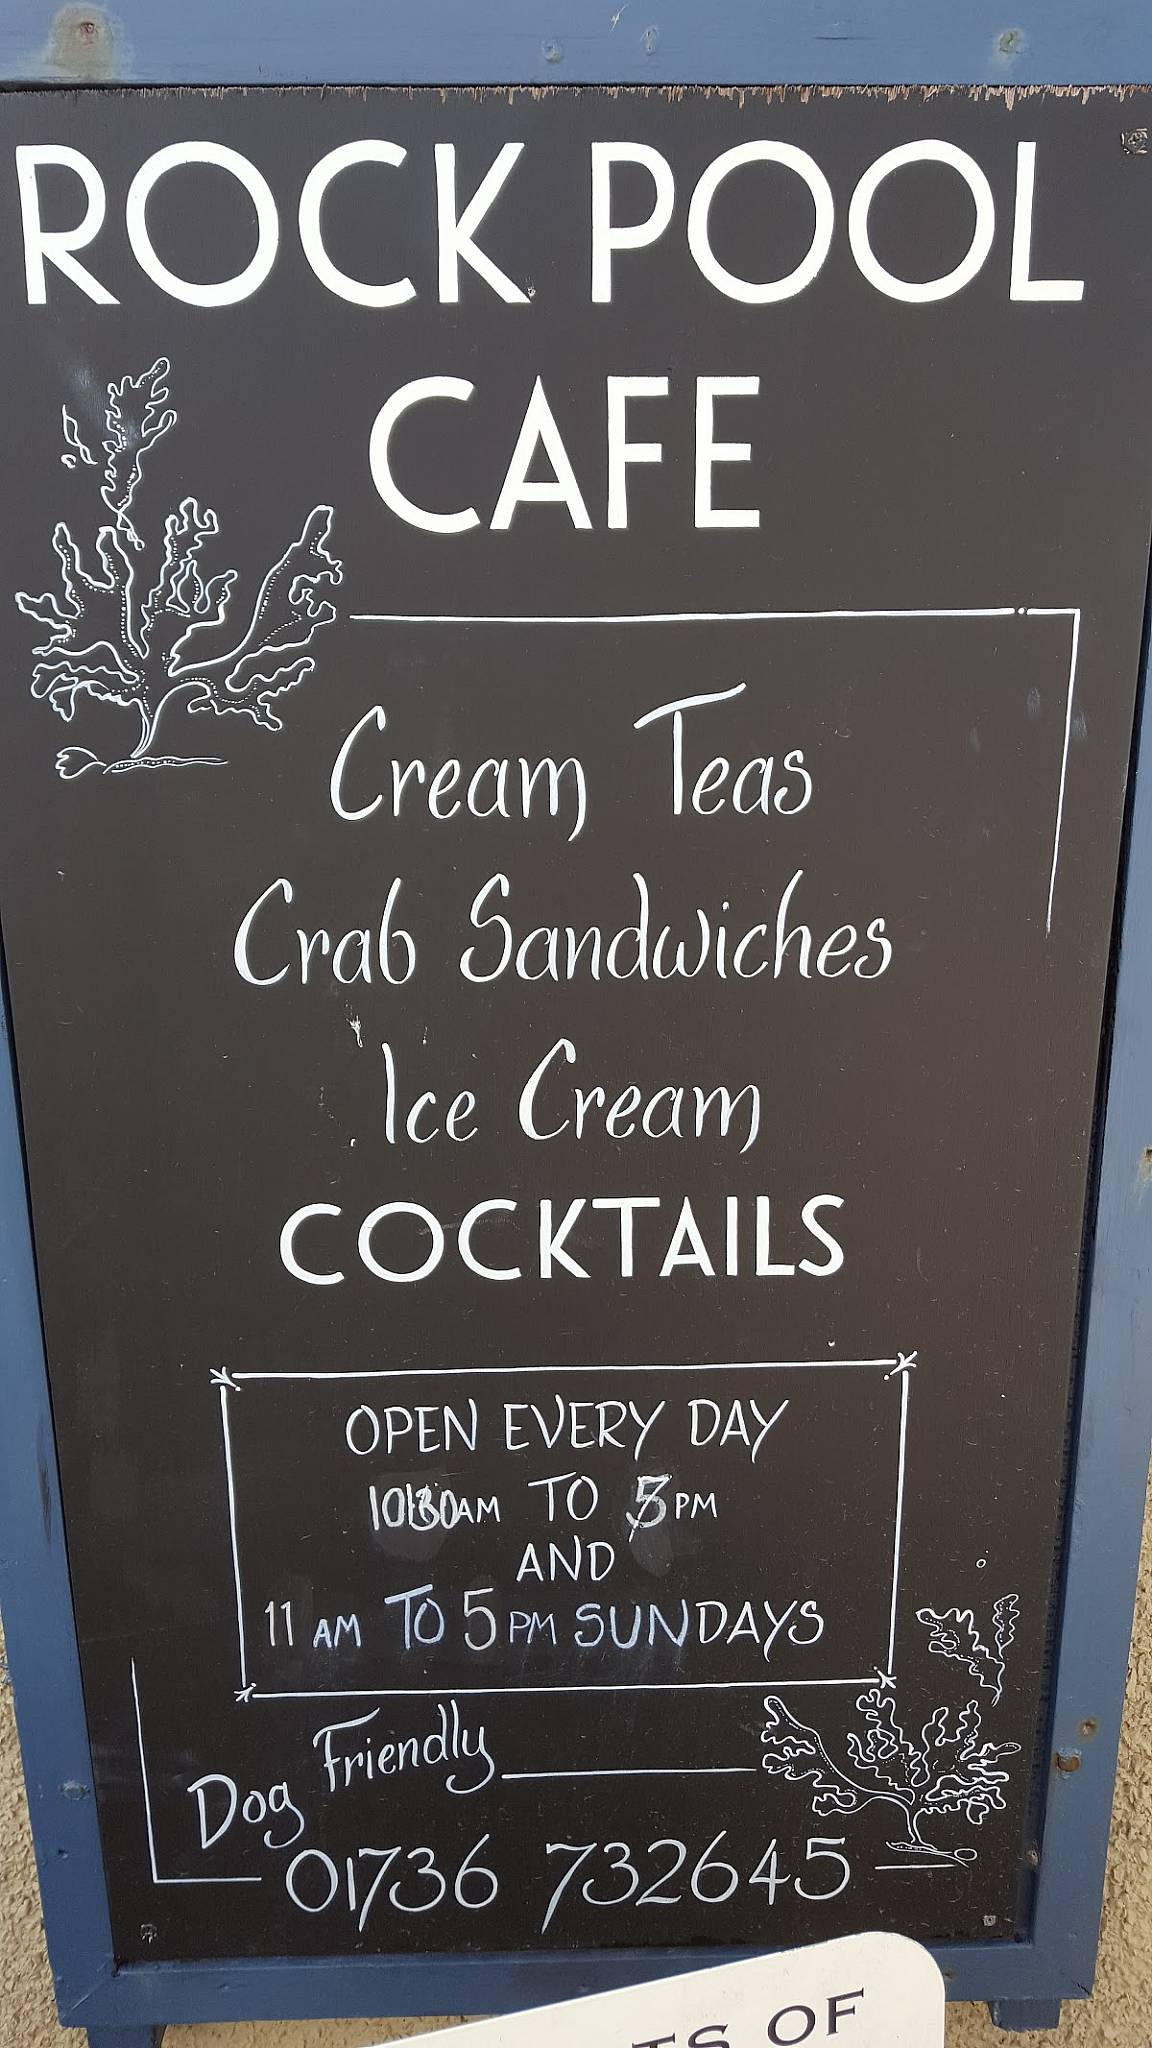 ROCK POOL
CAFE
Cream Teas
Crab Sandwiches
Ice Cream
COCKTAILS
OPEN EVERY DAY
TO 5PM
AND
11 AM TO 5PM SUNDAYS
Dog Friendly
01736 732645
OF